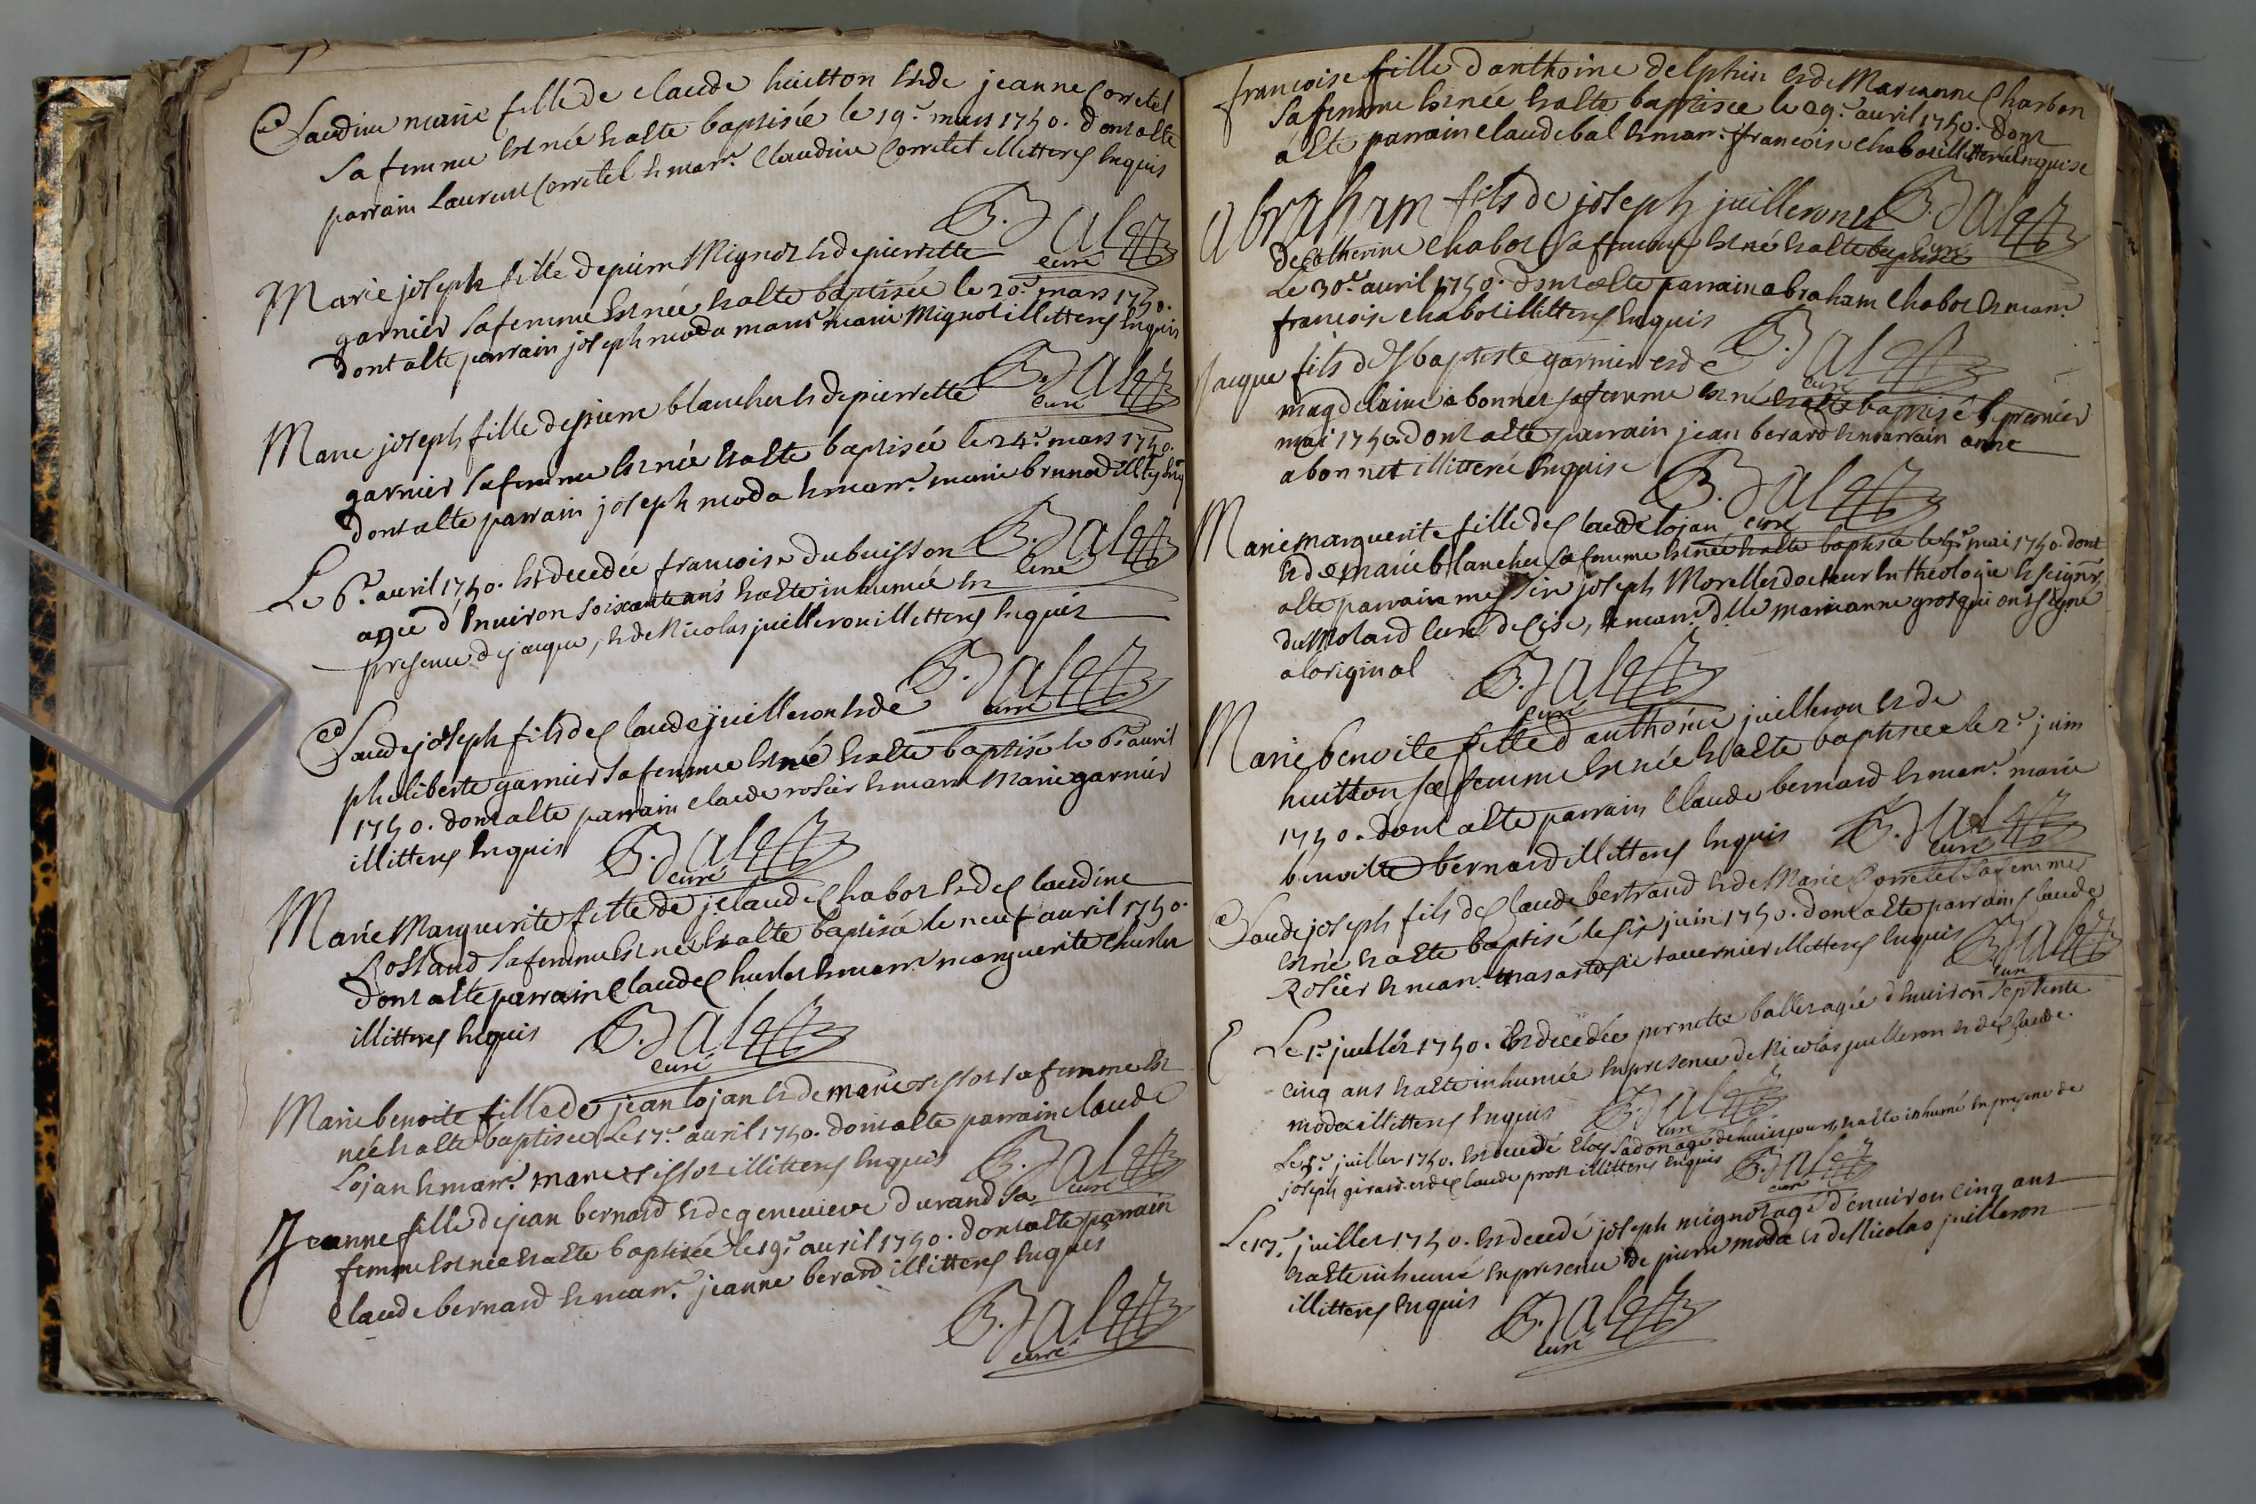 Claudine marie fille de claude huitton et de jeanne Corretel
sa femme est née et a été baptisée le 19e mars 1750. dont a été
parrain Laurent Corretel et marr.e Claudine Corretel illitterés enquis
B. Jalet
curé
Marie joseph fille de pierre Mignot et de pierrette
garnier sa femme est née et a été baptisée le 20e mars 1750.
dont a été parrain joseph moda marr.e marie Mignot illitterés enquis
B. Jalet
curé
Marie joseph fille de pierre blanchet et de pierrette
garnier sa femme est née et a été baptisée le 24e mars 1750.
dont a été parrain joseph moda et marr.e marie brunod
B. Jalet
curé
Le 6e avril 1750. est decedée francoise dubuisson
agée d'environ soixante ans et a été inhumée en
presence de jacque, et de Nicolas juilleron illitterés enquis
B. Jalet
curé
Claude joseph fils de Claude juilleron et de
pheliberte garnier sa femme est né et a été baptisé le 6e avril
1750. dont a été parrain claude rosier et marr.e Marie garnier
illitterés enquis
B. Jalet
curé
Marie Marguerite fille de claude Chabot et de Claudine
Rostand sa femme est née et a été baptisée le neuf avril 1750.
dont a été parrain Claude et marr.e marguerite
illitterés enquis
B. Jalet
curé
Marie benoite fille de jean lojan et de marie tissot sa femme est
née et a été baptisée le 17e avril 1750. dont a été parrain claude
Lojan et marr.e marie tissot illitterés enquis
B. Jalet
curé
Jeanne fille de jean bernard et de genevieve durand sa
femme est née et a été baptisée le 19e avril 1750. dont a été parrain
Claude bernard et marr.e jeanne berard illitterés enquis
B. Jalet
curé
francoise fille d'anthoine delphin et de Marianne Charbon
sa femme est née et a été baptisée le 29e avril 1750. dont
a été parrain claude bal et marr.e francoise chabot illitterée enquise
B. Jalet
curé
Abraham fils de joseph juilleron et
de catherine chabot sa femme est né et a été baptisé
Le 30e avril 1750. dont a été parrain abraham chabot et marr.e
francoise chabot illitterés enquis
B. Jalet
curé
Jacque fils de J baptiste garnier et de
magdelaine abonnet sa femme est né et a été baptisé le premier
mai 1750. dont a été parrain jean berard et marrain anne
abonnet illitteré enquise
B. Jalet
curé
Marie marguerite fille de Claude lojan
et de marie blanchet sa femme est née et a été baptisée le 5e mai 1750. dont
a été parrain messire joseph Morellet docteur en theologie et seign.r
du Molard curé de Cise, et marr.e d.lle marianne gros qui ont signé
a l'original
B. Jalet
curé
Marie benoite fille d'anthoine juilleron et de
huitton sa femme est née et a été baptisée le 2e juin
1750. dont a été parrain Claude bernard et marr.e marie
benoitte bernard illitterés enquis
B. Jalet
curé
Claude joseph fils de Claude bertrand et de Marie Corretel sa femme
est né et a été baptisé le six juin 1750. dont a été parrain Claude
Rosier et marr.e tavernier illitterés enquis
B. Jalet
curé
Le 1er juillet 1750. est decedée pernette ballet agée d'environ septente
cinq ans et a été inhumée en presence de Nicolas juilleron et de Claude
moda illitterés enquis
B. Jalet
curé
Le 5e juillet 1750. est decedé Eloy Sadon agé de huit jours, et a été inhumé en presence de
joseph girard et de Claude prost illitterés enquis
B. Jalet
curé
Le 17e juillet 1750. est decedé joseph mignot agé d'environ cinq ans
et a été inhumé en presence de pierre moda et de Nicolas juilleron
illitterés enquis
B. Jalet
curé